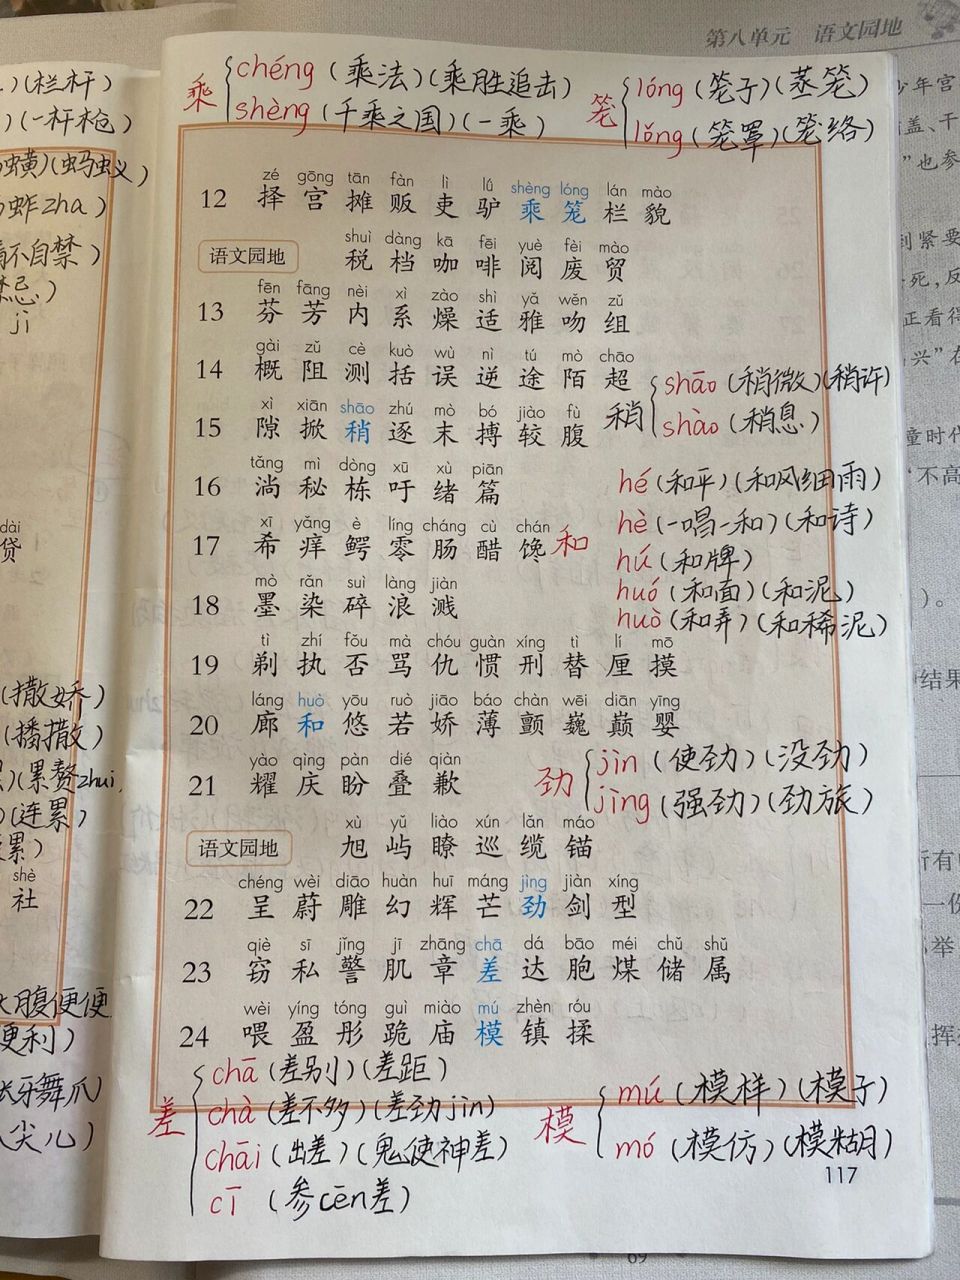 第八单元 语文园地
乘 chéng (乘法)(乘胜追击)
shèng (千乘之国)(一乘)
笼 lóng (笼子)(蒸笼)
lǒng (笼罩)(笼络)
zé gōng tān fàn lì lú shèng lóng lán mào
12 择 宫 摊 贩 吏 驴 乘 笼 栏 貌
shuì dàng kā fēi yuè fèi mào
语文园地 税 档 咖 啡 阅 废 贸
fēn fāng nèi xì zào shì yǎ wěn zǔ
13 芬 芳 内 系 燥 适 雅 吻 组
gài zǔ cè kuò wù nì tú mò chāo
14 概 阻 测 括 误 逆 途 陌 超
xì xiān shāo zhú mò bó jiào fù
15 隙 掀 稍 逐 末 搏 较 腹
稍 shāo (稍微)(稍许)
shào (稍息)
tǎng mì dòng xū xù piān
16 淌 秘 栋 吁 绪 篇
xī yǎng è líng cháng cù chán
17 希 痒 鳄 零 肠 醋 馋
和 hé (和平)(和风细雨)
hè (一唱一和)(和诗)
hú (和牌)
huó (和面)(和泥)
huò (和弄)(和稀泥)
mò rǎn suì làng jiàn
18 墨 染 碎 浪 溅
tì zhí fǒu mà chóu guàn xíng tì lí mō
19 剃 执 否 骂 仇 惯 刑 替 厘 摸
láng huò yōu ruò jiāo báo chàn wēi diān yīng
20 廊 和 悠 若 娇 薄 颤 巍 巅 婴
yào qìng pàn dié qiàn
21 耀 庆 盼 叠 歉
劲 jìn (使劲)(没劲)
jìng (强劲)(劲旅)
xù yǔ liào xún lǎn máo
语文园地 旭 屿 瞭 巡 缆 锚
chéng wèi diāo huàn huī máng jìng jiàn xíng
22 呈 蔚 雕 幻 辉 芒 劲 剑 型
qiè sī jǐng jī zhāng chā dá bāo méi chǔ shǔ
23 窃 私 警 肌 章 差 达 胞 煤 储 属
wèi yíng tóng guì miào mú zhèn róu
24 喂 盈 彤 跪 庙 模 镇 揉
差 chā (差别)(差距)
chà (差不多)(差劲jìn)
chāi (出差)(鬼使神差)
cī (参cēn差)
模 mú (模样)(模子)
mó (模仿)(模糊)
117
69
(栏杆)
(一杆枪)
(蚂蚁)
蚱zha)
不自禁)
忌)
jì
dài
贷
(撒娇)
(播撒)
(累赘zhui
(连累)
累)
shè
社
腹便便
便利)
牙舞爪)
尖儿)
少年宫
盖、干
”也参
紧要
死,反
正看得
兴”在
童时代
“不高
)。
结果
所有
一份
举